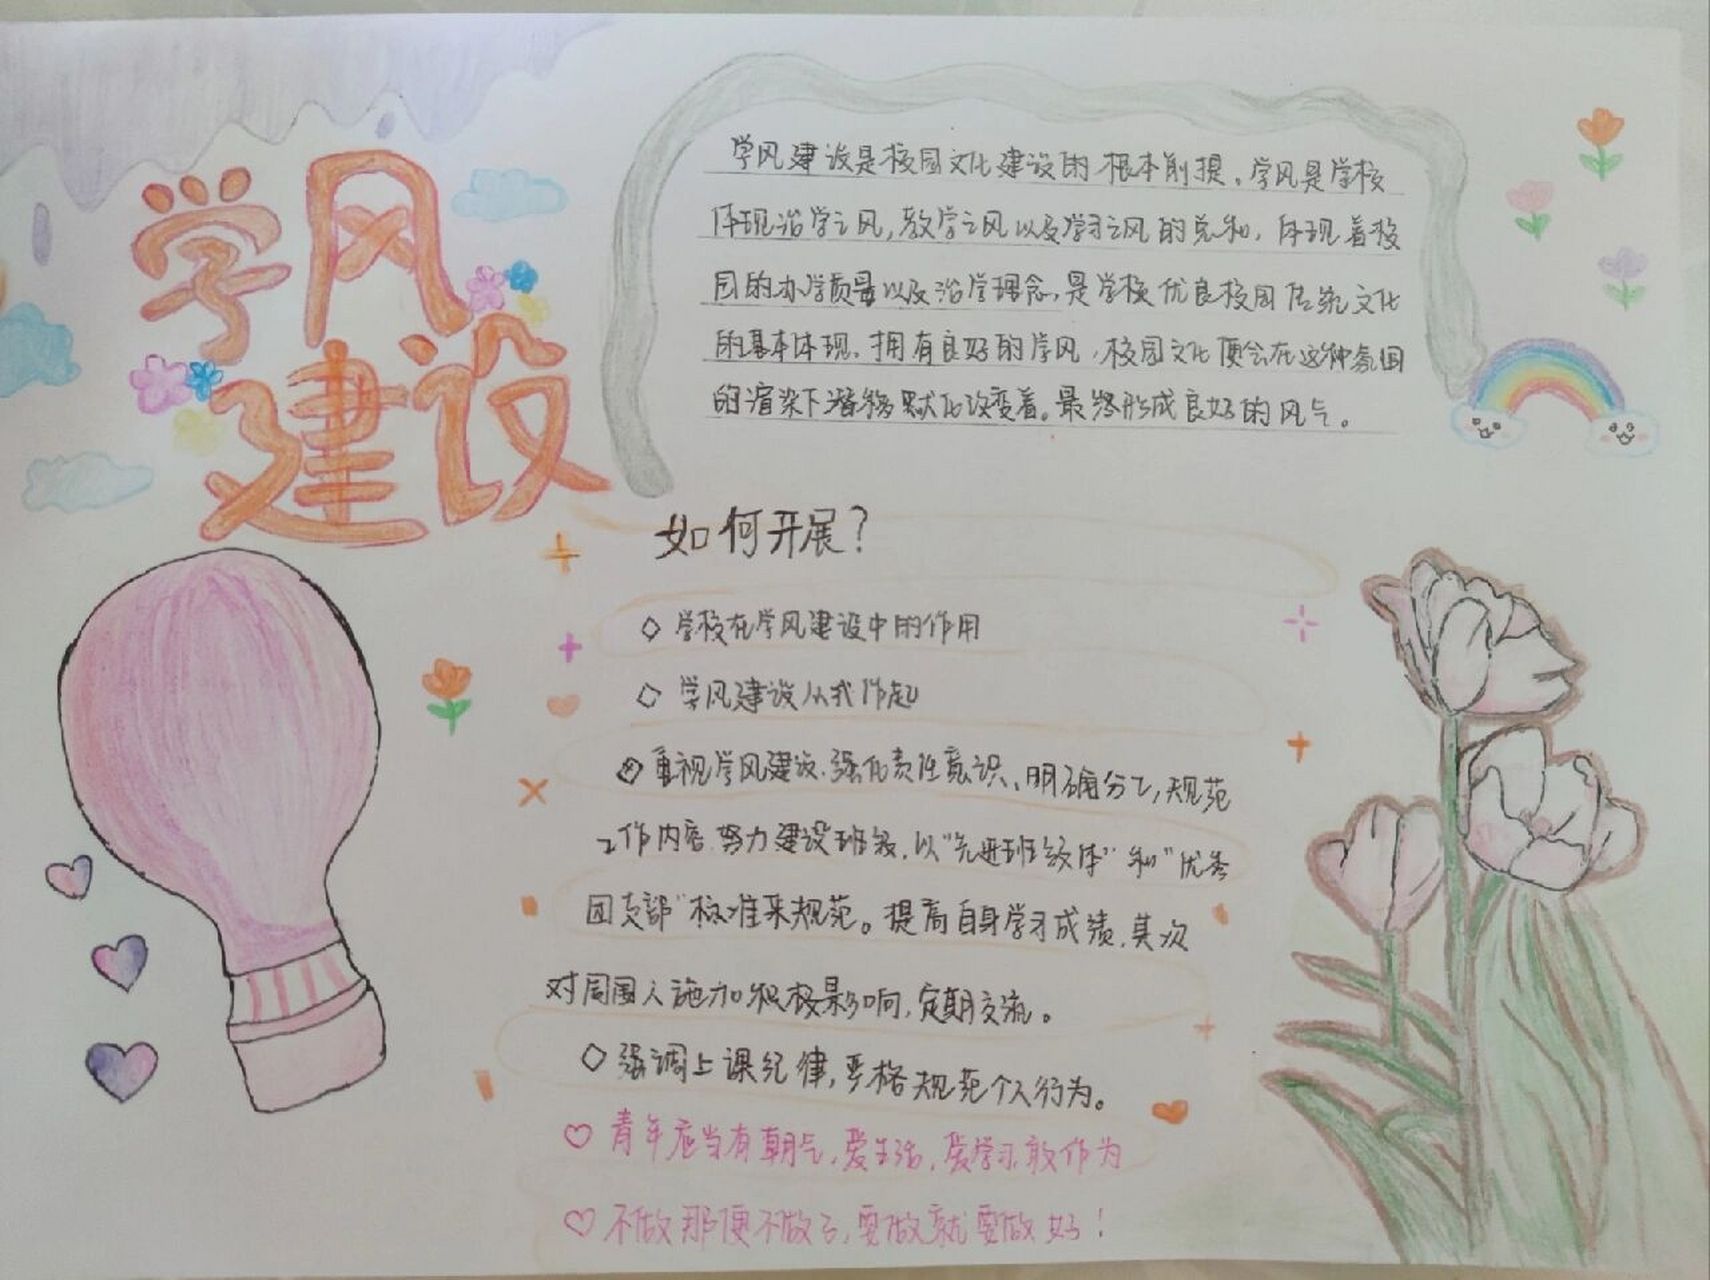 学风
建设
学风建设是校园文化建设的根本前提。学风是学校
体现治学之风,教学之风以及学习之风的总和,体现着校
园的办学质量以及治学理念,是学校优良校园传统文化
的基本体现。拥有良好的学风,校园文化便会在这种氛围
的渲染下潜移默化改变着。最终形成良好的风气。
如何开展?
◇ 学校在学风建设中的作用
◇ 学风建设从我作起
◇ 重视学风建设.强化责任意识、明确分工,规范
工作内容.努力建设班级.以"先进班级体"和"优秀
团支部"标准来规范。提高自身学习成绩.其次
对周围人施加积极影响,定期交流。
◇ 强调上课纪律,严格规范个人行为。
♡ 青年应当有朝气,爱生活,爱学习.敢作为
♡ 不做那便不做了,要做就要做好!